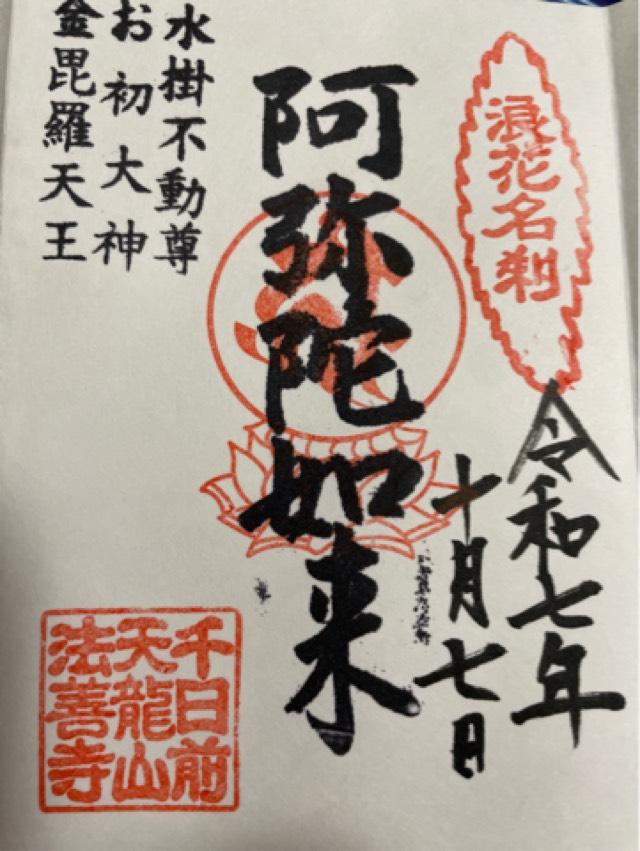 浪花名刹
令和七年
十月七日
阿弥陀如来
水掛不動尊
お初大神
金毘羅天王
千日前
天龍山
法善寺